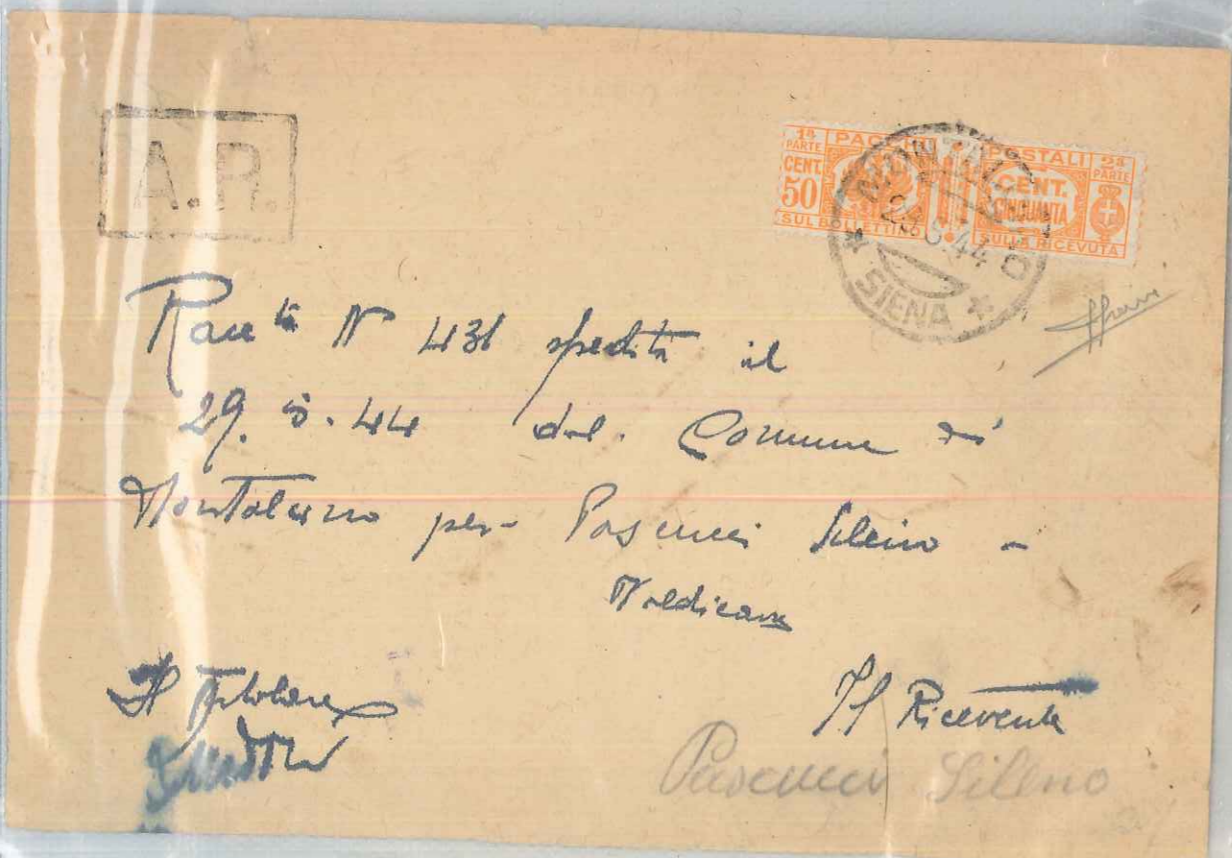 A.R.
1ª PARTE PACCHI POSTALI 2ª PARTE
CENT. 50 CENT. CINQUANTA
SUL BOLLETTINO SULLA RICEVUTA
MONTALCINO
44
* SIENA *
Racc ta N° 431 spedita il
29.5.44 dal Comune di
Montalcino per Pascucci Sileno -
Valdicava
Il Titolare
Il Ricevente
Pascucci Sileno